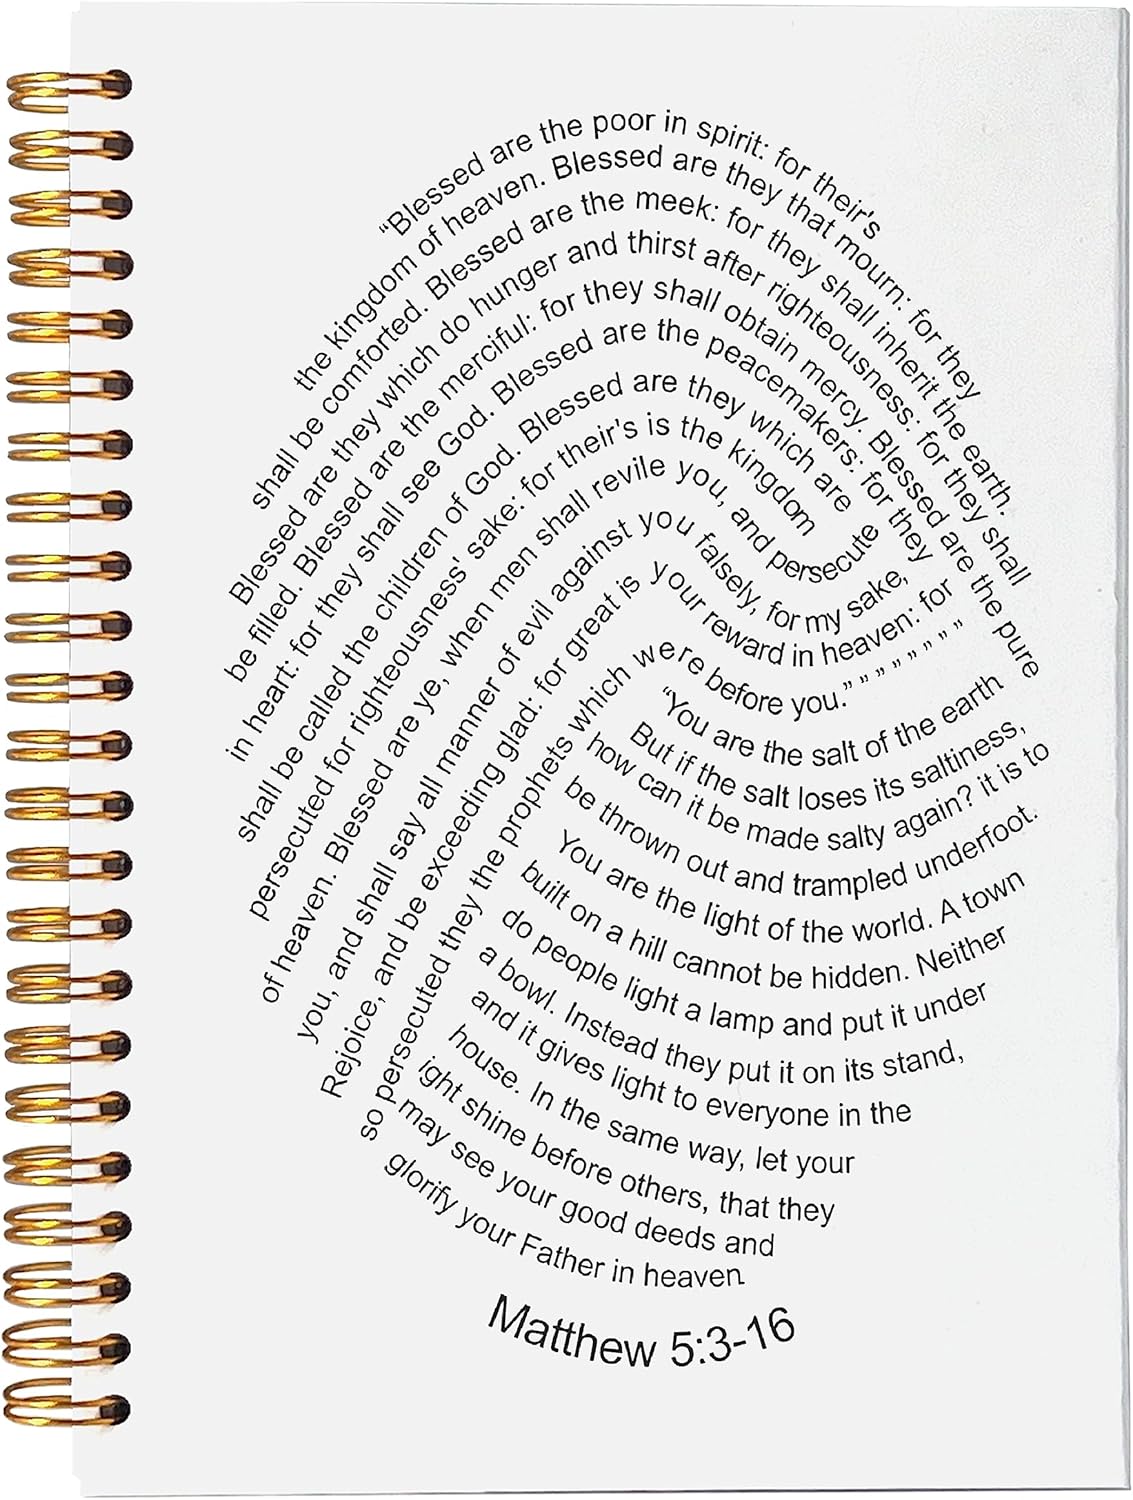 “Blessed are the poor in spirit: for their's
the kingdom of heaven. Blessed are they that mourn: for they
shall be comforted. Blessed are the meek: for they shall inherit the earth.
Blessed are they which do hunger and thirst after righteousness: for they shall
be filled. Blessed are the merciful: for they shall obtain mercy. Blessed are the pure
in heart: for they shall see God. Blessed are the peacemakers: for they
shall be called the children of God. Blessed are they which are
persecuted for righteousness' sake: for their's is the kingdom
of heaven. Blessed are ye, when men shall revile you, and persecute
you, and shall say all manner of evil against you falsely, for my sake,
Rejoice, and be exceeding glad: for great is your reward in heaven: for
so persecuted they the prophets which were before you.” ” ” ” ” ” ” ”
“You are the salt of the earth
But if the salt loses its saltiness,
how can it be made salty again? it is to
be thrown out and trampled underfoot.
You are the light of the world. A town
built on a hill cannot be hidden. Neither
do people light a lamp and put it under
a bowl. Instead they put it on its stand,
and it gives light to everyone in the
house. In the same way, let your
ight shine before others, that they
may see your good deeds and
glorify your Father in heaven
Matthew 5:3-16